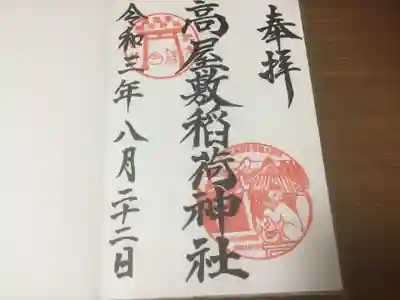 奉拝
高屋敷稲荷神社
令和三年八月二十二日